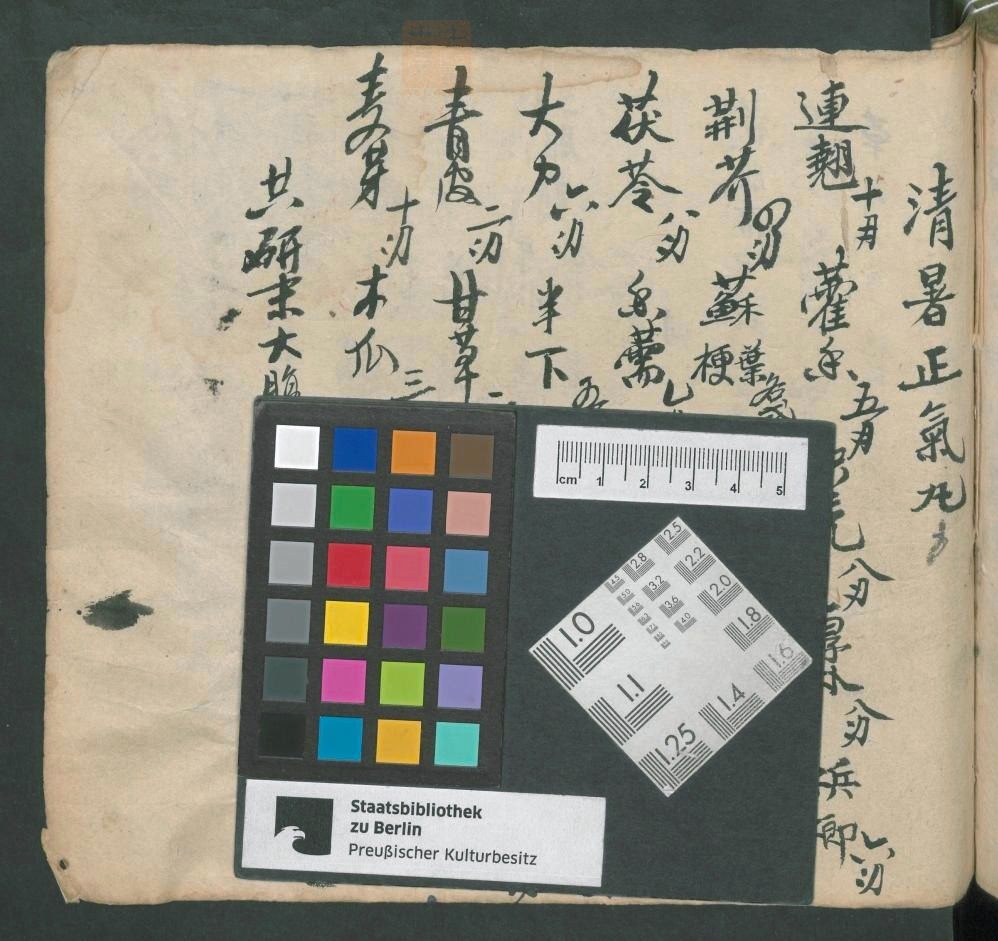 清暑正氣丸
連翹 十刃 藿香 五刃 八刃 厚朴 八刃 兵郎 六刃
荆芥 四刃 蘇梗葉 各
茯苓 八刃 香薷
大力 六刃 半下 五
青皮 二刃 甘草 二
麦芽 十刃 木瓜 三
共研末大腹
cm 1 2 3 4 5
2.5
2.8 2.2
3.2 2.0
3.6 1.8
4.0 1.6
1.0
1.1 1.4
1.25
Staatsbibliothek
zu Berlin
Preußischer Kulturbesitz